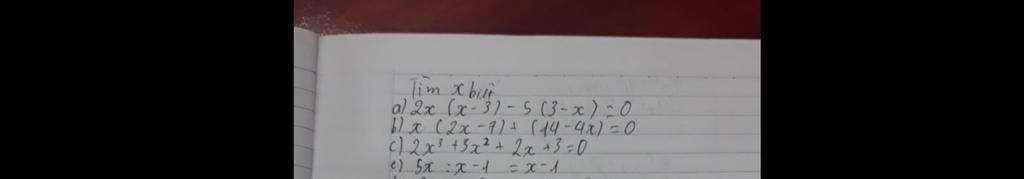 Tìm x biết
a) 2x (x-3) - 5 (3-x) = 0
b) x (2x-7) + (14-4x) = 0
c) 2x³ + 3x² + 2x + 3 = 0
e) 5x : x-1 = x-1